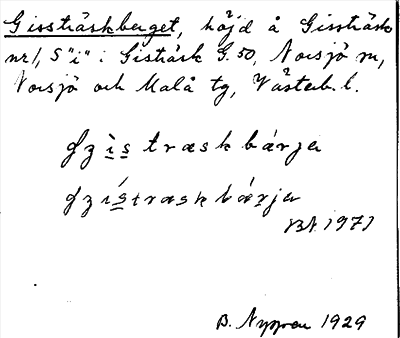 Gissträskberget, höjd å Gissträsk
nr 1, S "i" i Gisträsk G. 50, Norsjö sn,
Norsjö och Malå tg, Västerb. l.
träskbárja
träskbárja
BN. 1971
B. Nygren 1929